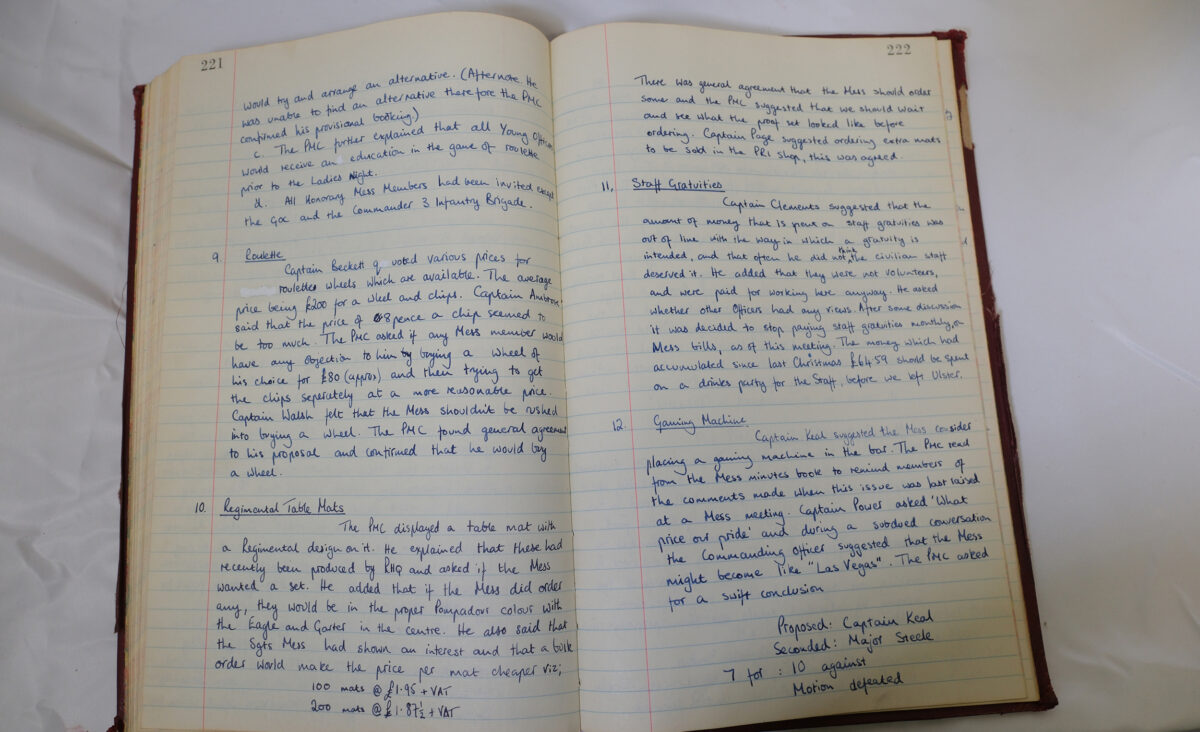 221
would try and arrange an alternative. (Afternote. He
was unable to find an alternative therefore the PMC
confirmed his provisional booking.)
c. The PMC further explained that all Young Officers
would receive an education in the game of roulette
prior to the Ladies Night.
d. All Honorary Mess Members had been invited except
the GOC and the Commander 3 Infantry Brigade.
9. Roulette
Captain Beckett quoted various prices for
roulette wheels which are available. The average
price being £200 for a wheel and chips. Captain Ambrose
said that the price of 8 pence a chip seemed to
be too much. The PMC asked if any Mess member would
have any objection to him by buying a wheel of
his choice for £80 (approx) and then trying to get
the chips seperately at a more reasonable price.
Captain Walsh felt that the Mess shouldn't be rushed
into buying a wheel. The PMC found general agreement
to his proposal and confirmed that he would buy
a wheel.
10. Regimental Table Mats
The PMC displayed a table mat with
a Regimental design on it. He explained that these had
recently been produced by RHQ and asked if the Mess
wanted a set. He added that if the Mess did order
any, they would be in the proper Pompadour colour with
the Eagle and Garter in the centre. He also said that
the Sgts Mess had shown an interest and that a bulk
order would make the price per mat cheaper viz;
100 mats @ £1.95 + VAT
200 mats @ £1.87½ + VAT
222
There was general agreement that the Mess should order
some and the PMC suggested that we should wait
and see what the proof set looked like before
ordering. Captain Page suggested ordering extra mats
to be sold in the PRI shop, this was agreed.
11. Staff Gratuities
Captain Clements suggested that the
amount of money that is spent on staff gratuities was
out of line with the way in which a gratuity is
intended, and that often he did not think the civilian staff
deserved it. He added that they were not volunteers,
and were paid for working here anyway. He asked
whether other Officers had any views. After some discussion
it was decided to stop paying staff gratuities monthly, on
Mess bills, as of this meeting. The money which had
accumulated since last Christmas £64.59 should be spent
on a drinks party for the Staff, before we left Ulster.
12. Gaming Machine
Captain Keal suggested the Mess consider
placing a gaming machine in the bar. The PMC read
from the Mess minutes book to remind members of
the comments made when this issue was last raised
at a Mess meeting. Captain Power asked 'What
price our pride' and during a subdued conversation
the Commanding Officer suggested that the Mess
might become like "Las Vegas". The PMC asked
for a swift conclusion
Proposed: Captain Keal
Seconded: Major Steele
7 for : 10 against
Motion defeated